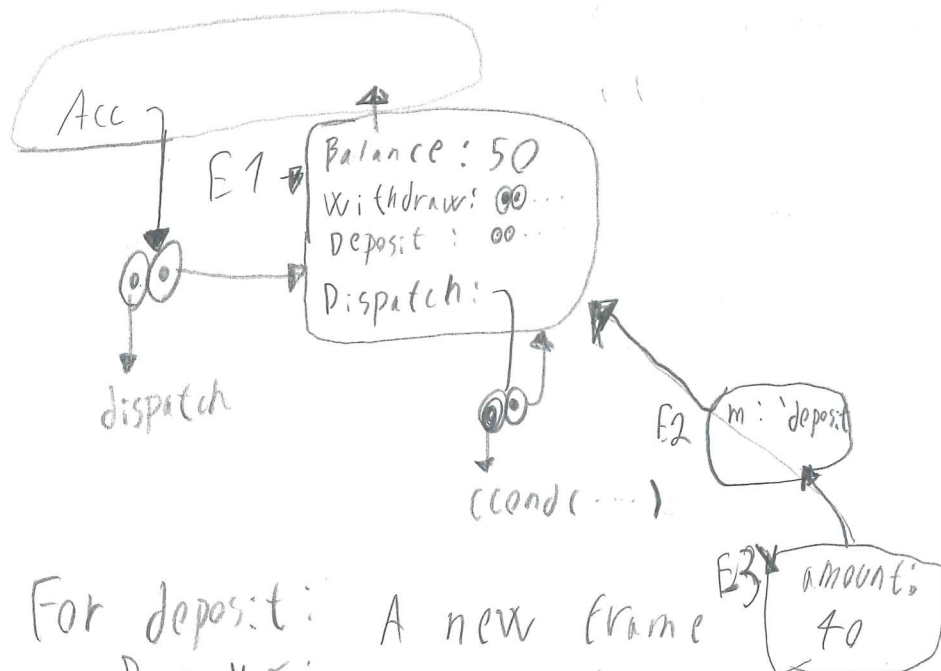 Acc
E1
Balance: 50
Withdraw: ...
Deposit : ...
Dispatch:
dispatch
(cond (....)
E2
m : 'deposit
E3
amount:
40
For deposit: A new frame